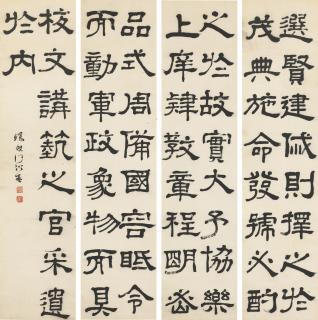 選賢建戚則擇之於
茂典施命發號必酌
之於故實大予協樂
上庠肄教章程明密
品式周備國容眂令
而動軍政象物而具
校文講蓺之官采遺
於內
蝯叟何紹基